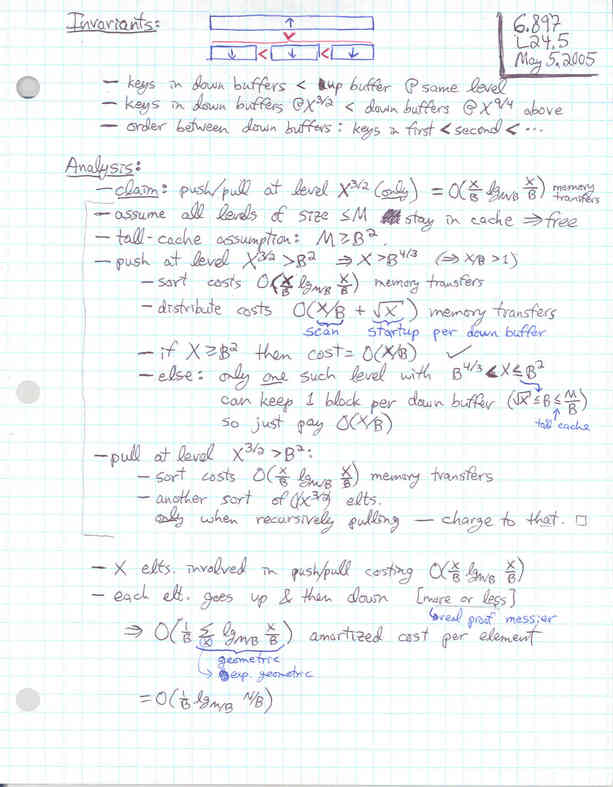 Invariants:
6.897
L24.5
May 5, 2005
↑
↓ < ↓ < ↓
– keys in down buffers < up buffer @ same level
– keys in down buffers @X^{3/2} < down buffers @ X^{9/4} above
– order between down buffers: keys in first < second < ⋯
Analysis:
– claim: push/pull at level X^{3/2} (only) = O(X/B lg_{M/B} X/B) memory transfers
– assume all levels of size ≤ M stay in cache ⇒ free
– tall-cache assumption: M ≥ B².
– push at level X^{3/2} > B² ⇒ X > B^{4/3} (⇒ X/B > 1)
– sort costs O(X/B lg_{M/B} X/B) memory transfers
– distribute costs O(X/B + √X) memory transfers
scan startup per down buffer
– if X ≥ B² then cost = O(X/B) ✓
– else: only one such level with B^{4/3} < X ≤ B²
can keep 1 block per down buffer (√X ≤ B ≤ M/B)
tall cache
so just pay O(X/B)
– pull at level X^{3/2} > B²:
– sort costs O(X/B lg_{M/B} X/B) memory transfers
– another sort of (X^{3/2}) elts.
only when recursively pulling — charge to that. □
– X elts. involved in push/pull costing O(X/B lg_{M/B} X/B)
– each elt. goes up & then down [more or less]
↳ real proof messier
⇒ O(1/B Σ_{X} lg_{M/B} X/B) amortized cost per element
geometric
↳ exp. geometric
= O(1/B lg_{M/B} N/B)